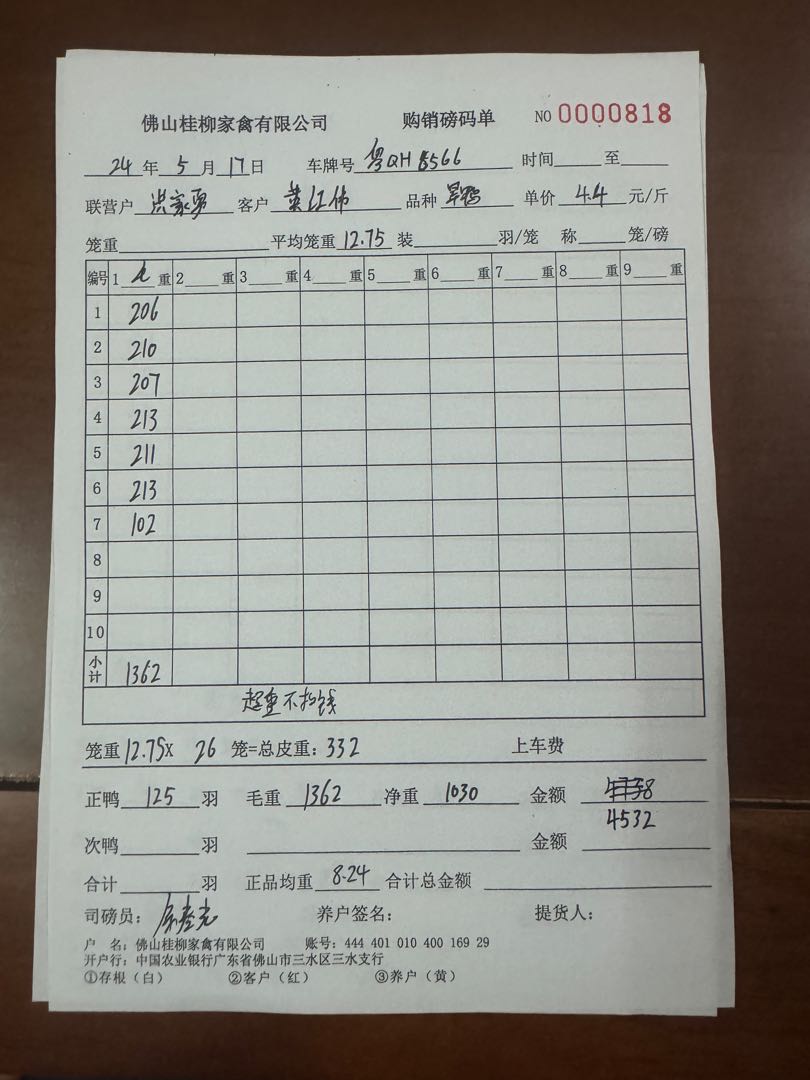 佛山桂柳家禽有限公司 购销磅码单 NO 0000818
24年5月17日 车牌号 粤QH8566 时间 至
联营户 洪家勇 客户 黄红伟 品种 旱鸭 单价 4.4 元/斤
笼重 平均笼重 12.75 装 羽/笼 称 笼/磅
编号 1 重 2 重 3 重 4 重 5 重 6 重 7 重 8 重 9 重
1 206
2 210
3 207
4 213
5 211
6 213
7 102
8
9
10
小计 1362
超重不扣钱
笼重 12.75X 26 笼=总皮重: 332 上车费
正鸭 125 羽 毛重 1362 净重 1030 金额
4532
次鸭 羽 金额
合计 羽 正品均重 8.24 合计总金额
司磅员: 养户签名: 提货人:
户 名: 佛山桂柳家禽有限公司 账号: 444 401 010 400 169 29
开户行: 中国农业银行广东省佛山市三水区三水支行
①存根(白) ②客户(红) ③养户(黄)